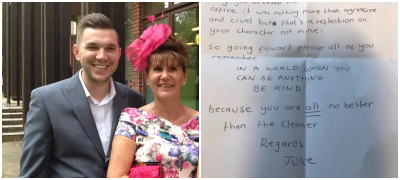 office it was nothing more than aggressive
and cruel but that's a reflection on
your character not mine.
So going forward please all of you
remember
IN A WORLD WHEN YOU
CAN BE ANYTHING
BE KIND
because you are all no better
than the cleaner
Regards
Julie